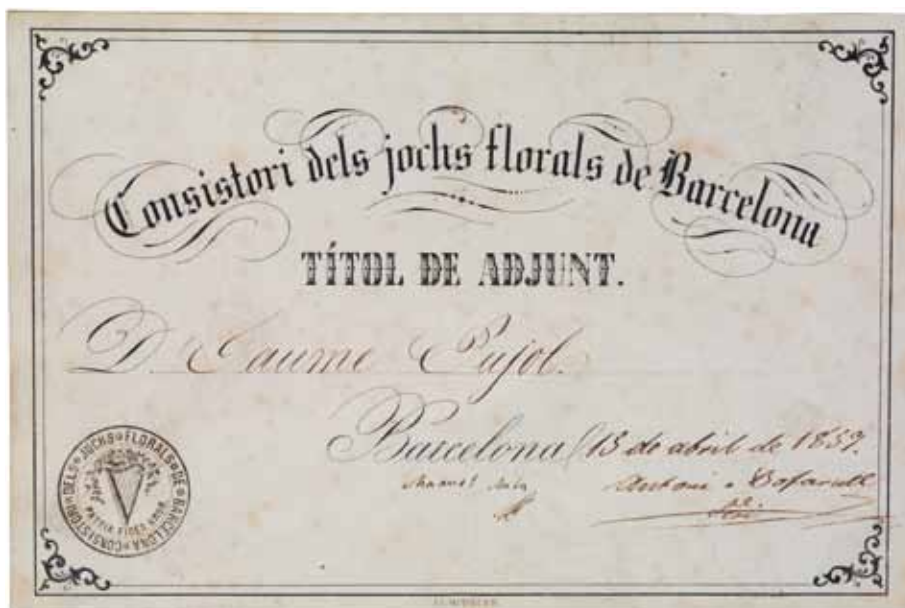 Consistori dels jochs florals de Barcelona
TÍTOL DE ADJUNT.
D. Jaume Pujol.
Barcelona 13 de abril de 1859.
Manuel
Antoni de Bofarull
CONSISTORI DELS JOCHS FLORALS DE BARCELONA
PATRIA FIDES AMOR